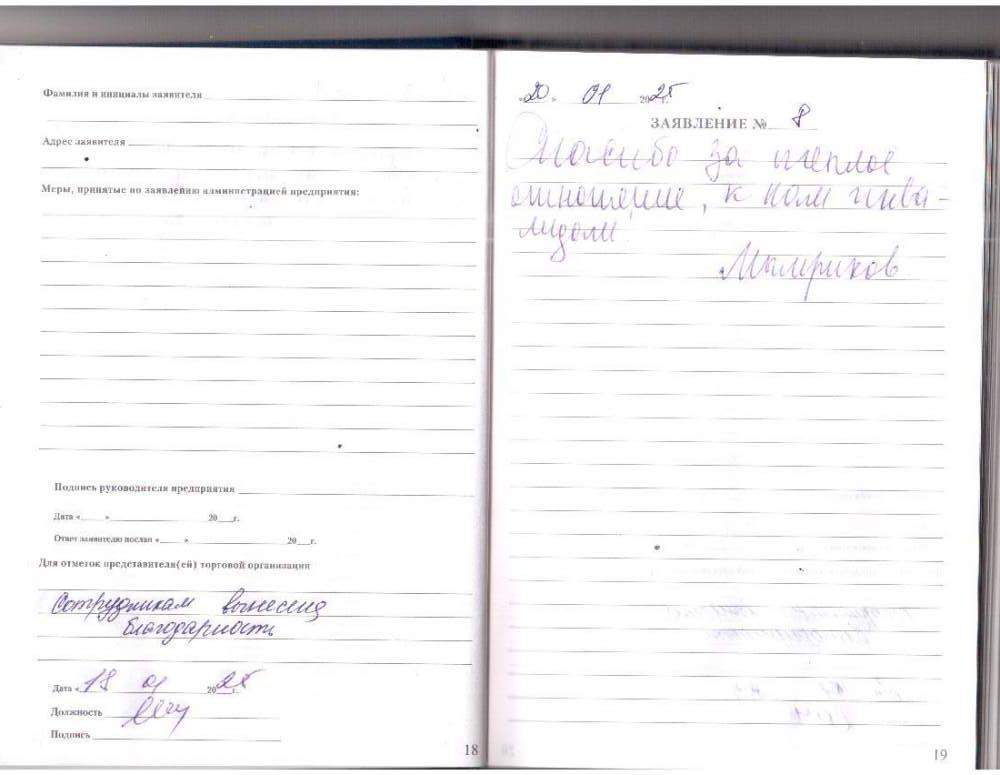 Фамилия и инициалы заявителя
Адрес заявителя
Меры, принятые по заявлению администрацией предприятия:
Подпись руководителя предприятия
Дата « » 20 г.
Ответ заявителю послан « » 20 г.
Для отметок представителя(ей) торговой организации
Сотрудникам вынесена
благодарность
Дата « 18 01 2025 г.
Должность
Подпись
18
«20» 01 2025 г.
ЗАЯВЛЕНИЕ № 8
Спасибо за теплое
отношение, к нам инва-
лидам
19